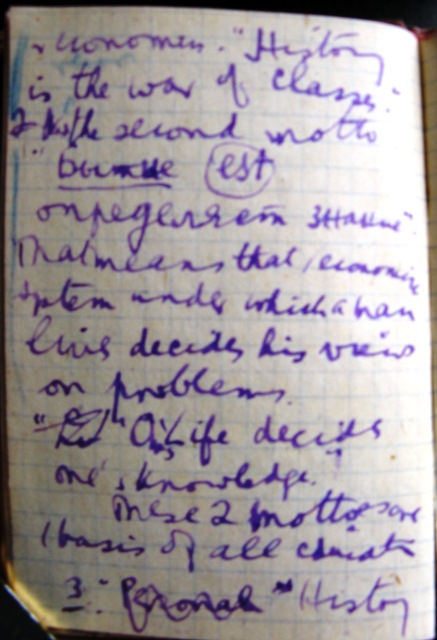 economics. "History
is the war of classes."
2 the second motto
"бытие est
определяет знание".
That means that economic
system under which a man
lives decides his views
on problems.
"On's Life decides
one's knowledge."
These 2 mottoes are
basis of all
3. Personal "History